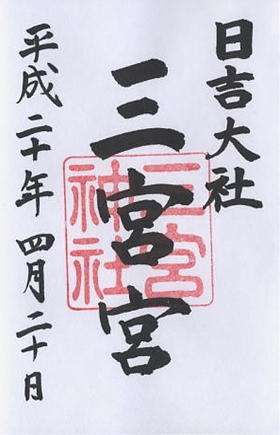 日吉大社
三宮宮
三宮
神社
平成二十年 四月二十日